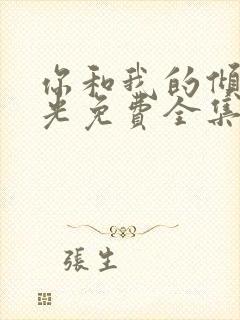 你和我的傾
光免費全集
張生